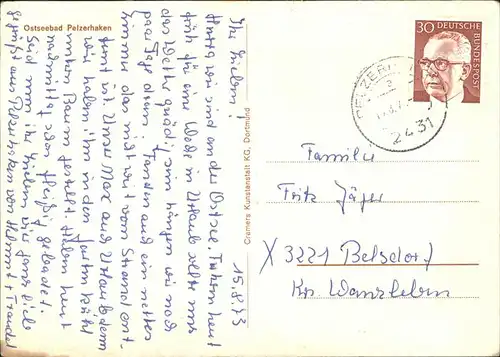 Ostseebad Pelzerhaken
15.8.73
Ihr Lieben!
Heute sind wir an der Ostsee. Fuhren heut
früh für eine Woche in Urlaub sollte uns
das Wetter gnädig sein hängen wir noch
paar Tage dran. Fanden auch ein nettes
Zimmer das nicht weit vom Strand ent-
fernt ist. Unser Max auch Urlaub denn
wir haben ihn in den
unterm Baum gestellt. Haben heut
nachmittag schon fleißig gebadet.
Seid nun ihr Lieben hier ganz lieb
gegrüßt aus Pelzerhaken von Helmut + Traudel
Cramers Kunstanstalt KG, Dortmund
30 DEUTSCHE
BUNDESPOST
PELZERH
2431
Familie
Fritz Jäger
X 3221 Belsdorf
Krs Wanzleben